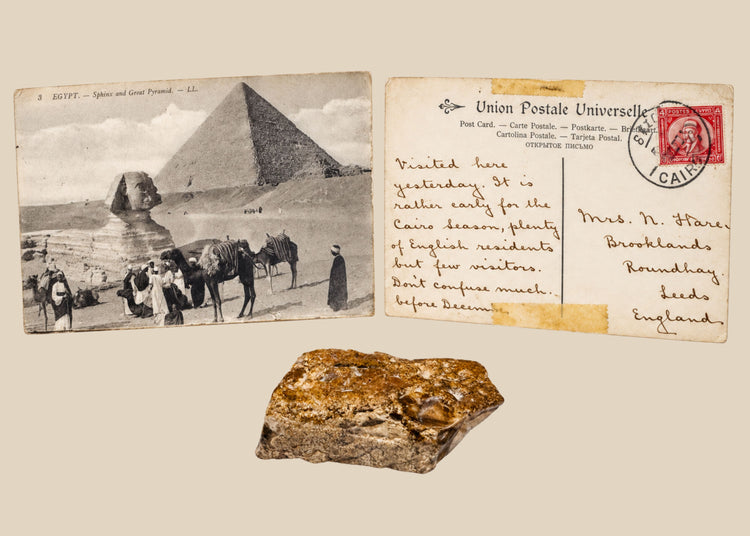 3 EGYPT. — Sphinx and Great Pyramid. — LL.
Union Postale Universelle
Post Card. — Carte Postale. — Postkarte. —
Cartolina Postale. — Tarjeta Postal.
ОТКРЫТОЕ ПИСЬМО
Visited here
yesterday. It is
rather early for the
Cairo Season, plenty
of English residents
but few visitors.
Don't confuse much.
before
CAIRO
Mrs. N. Hare
Brooklands
Roundhay.
Leeds
England